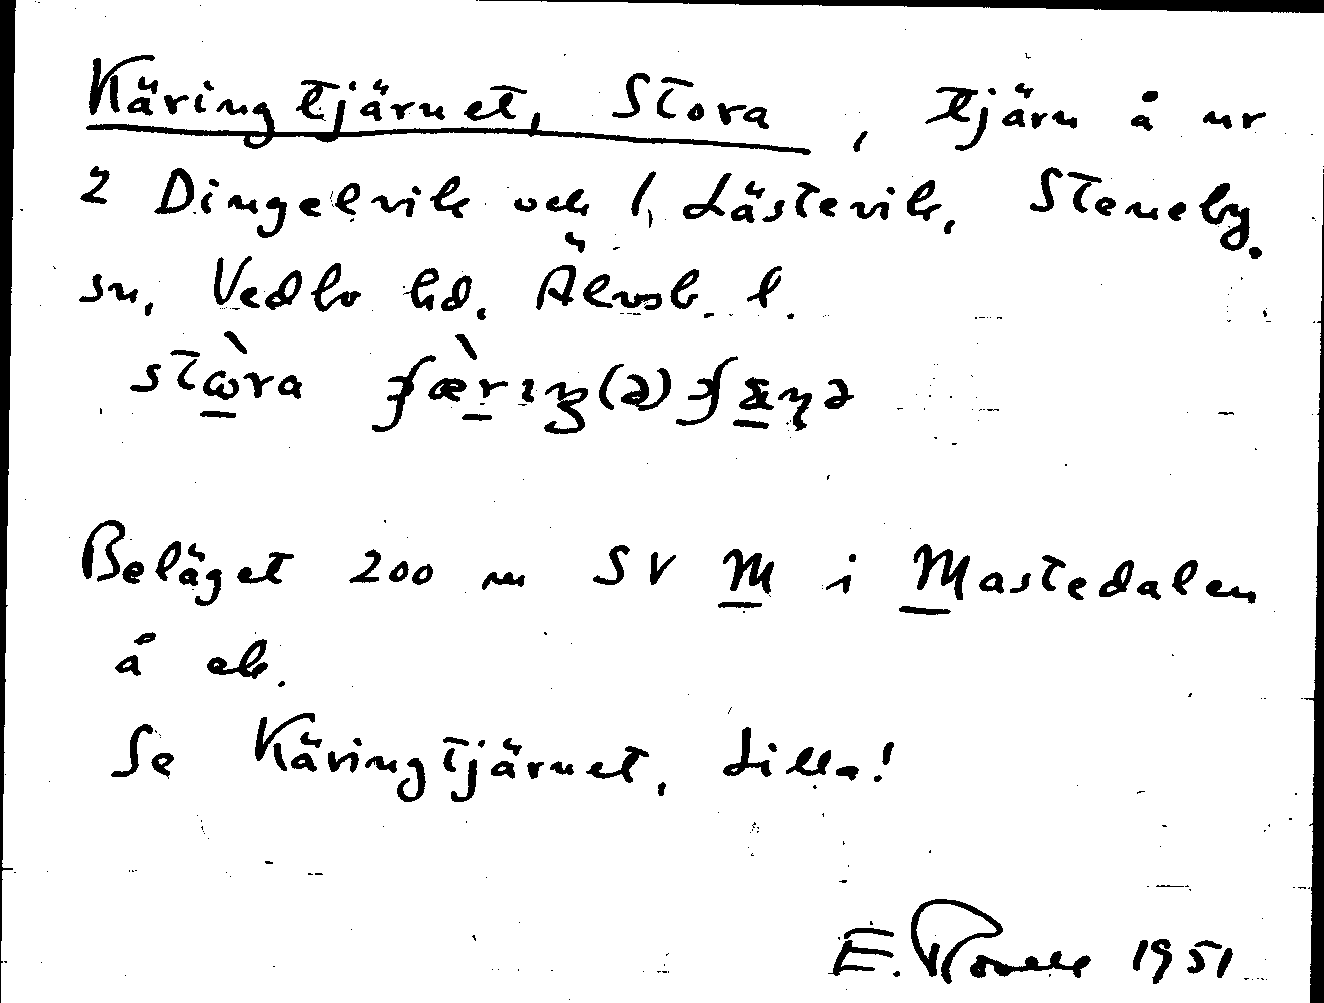 Käringtjärnet, Stora, tjärn å nr
2 Dingelvik och 1, Lästevik, Steneby
sn, Vedbo hd. Älvsb. l.
Beläget 200 m SV M i Mastedalen
å ek.
Se Käringtjärnet, Lilla!
E. 1951